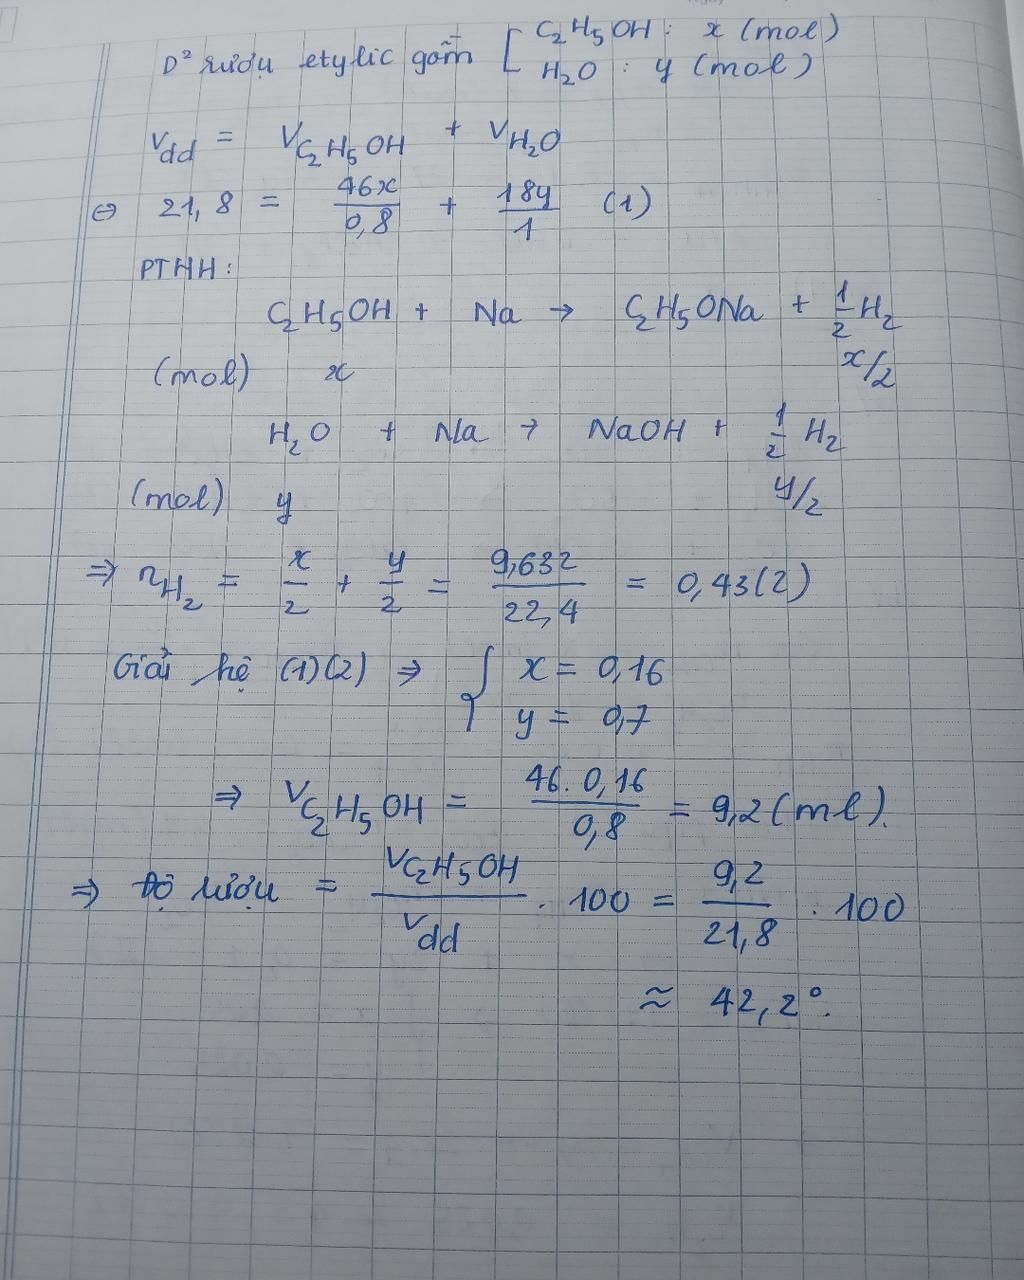 D² rượu etylic gồm [ C₂H₅OH : x (mol)
H₂O : y (mol)
Vdd = V C₂H₅OH + V H₂O
⇔ 21,8 = 46x/0,8 + 18y/1 (1)
PTHH:
C₂H₅OH + Na → C₂H₅ONa + 1/2 H₂
(mol) x x/2
H₂O + Na → NaOH + 1/2 H₂
(mol) y y/2
⇒ nH₂ = x/2 + y/2 = 9,632/22,4 = 0,43 (2)
Giải hệ (1)(2) ⇒ { x = 0,16
y = 0,7
⇒ V C₂H₅OH = 46. 0,16/0,8 = 9,2 (ml).
⇒ Độ rượu = V C₂H₅OH/Vdd . 100 = 9,2/21,8 . 100
≈ 42,2°.